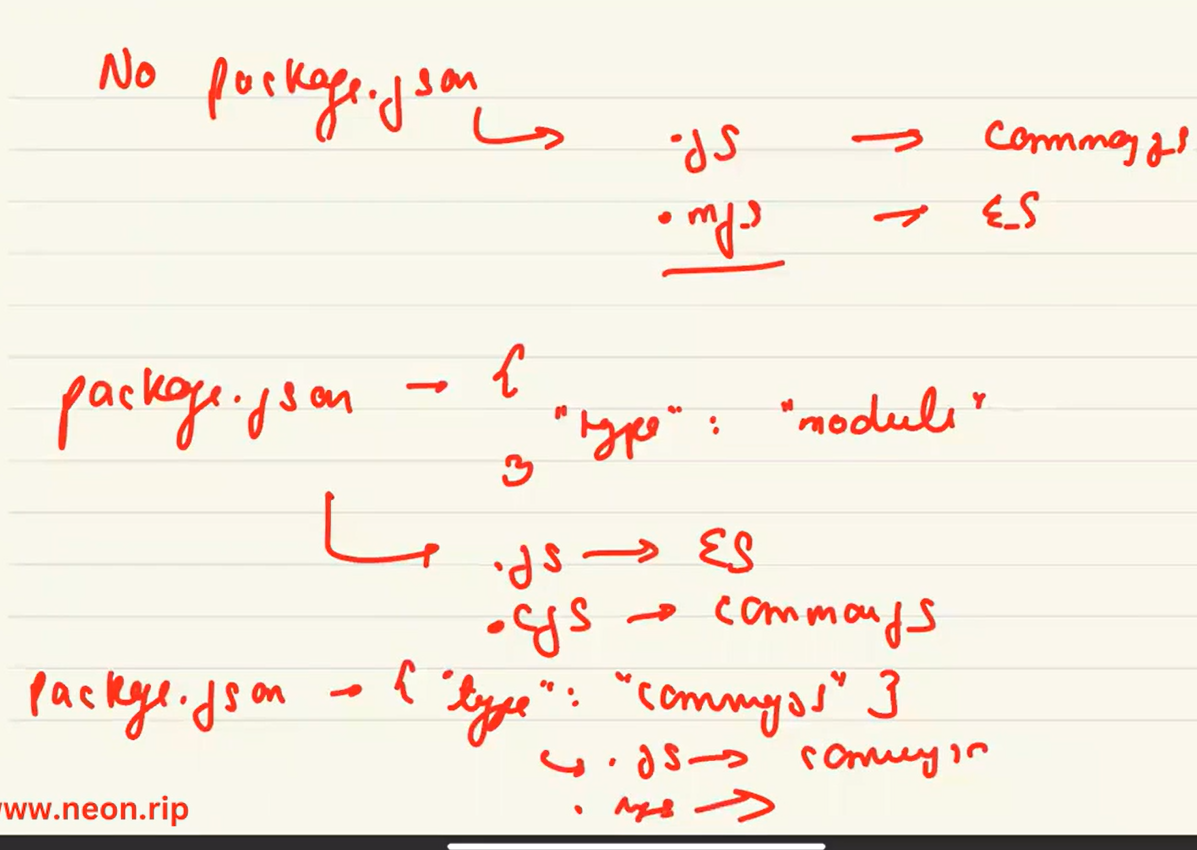 No package.json
.js → commonjs
.mjs → ES
package.json → {
"type" : "module"
}
.js → ES
.cjs → commonjs
package.json → { "type" : "commonjs" }
.js → commonjs
.mjs →
www.neon.rip